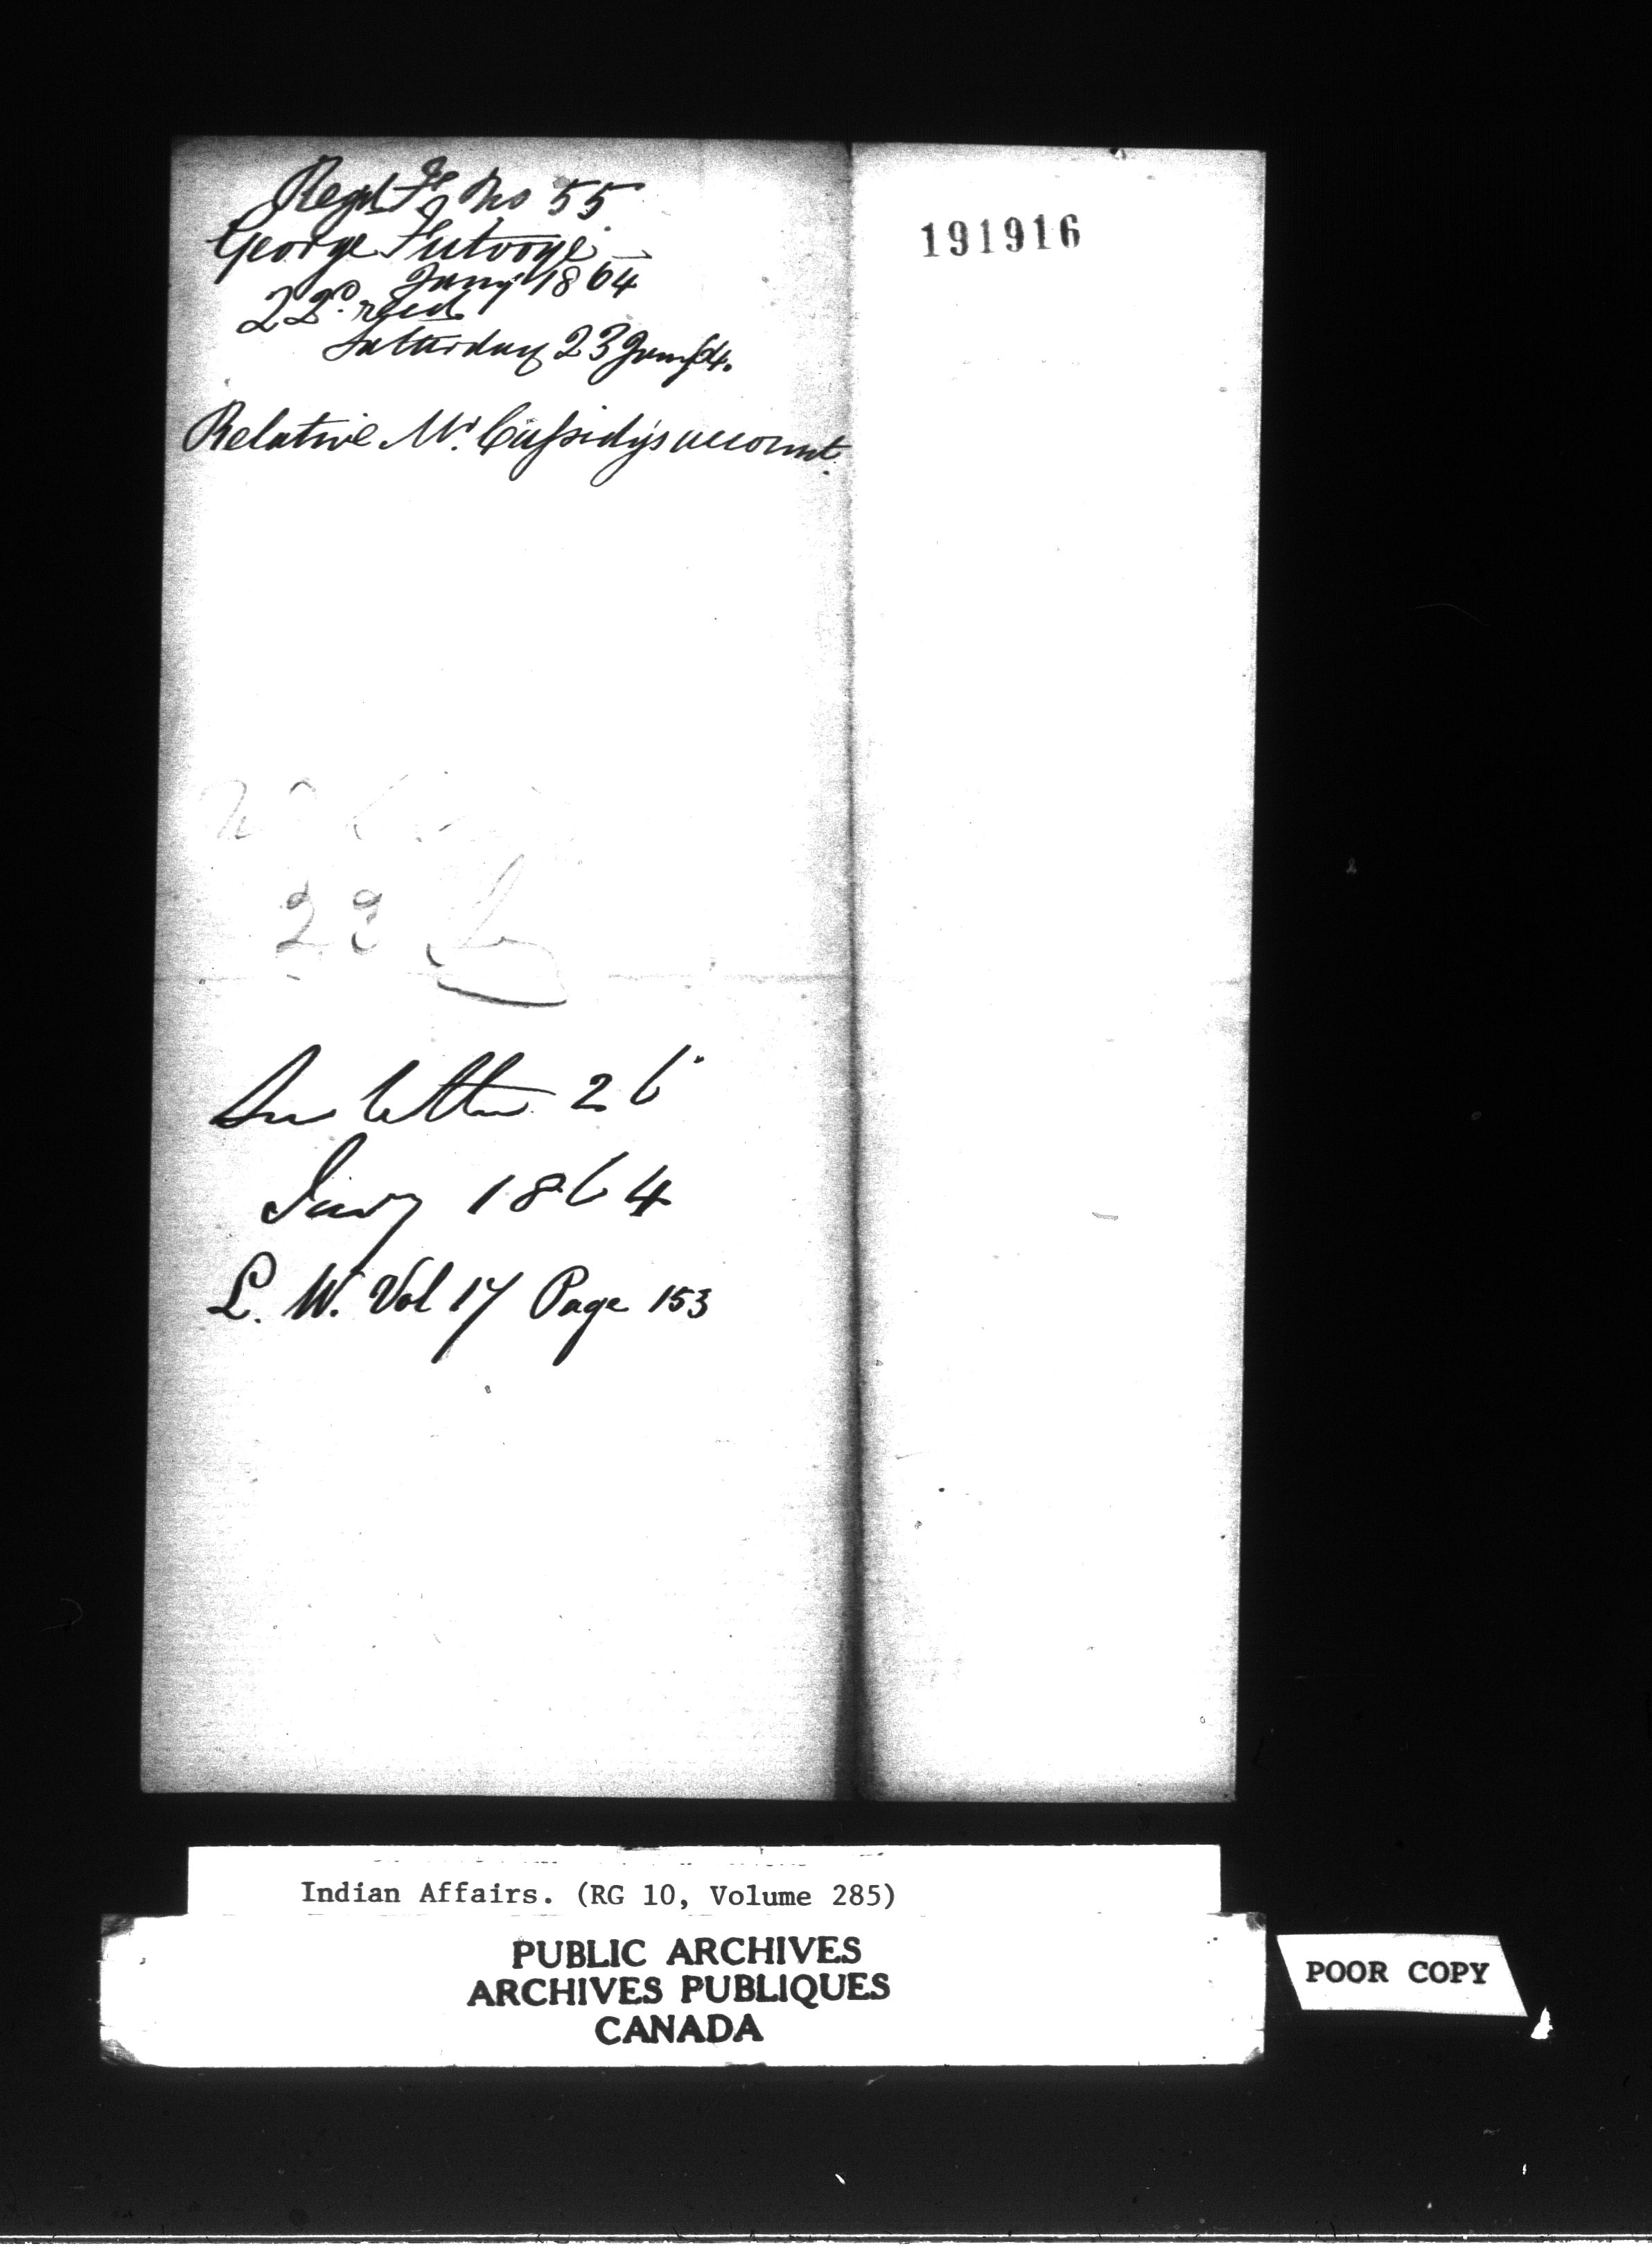 Regd Fo No 55
George Futvoye
22d Jany 1864
recd
Saturday 23 Jany 64.
Relative Mr. Cassidy's account.
23
See letter 26
Jany 1864
L. W. Vol 17 Page 153
191916
Indian Affairs. (RG 10, Volume 285)
PUBLIC ARCHIVES
ARCHIVES PUBLIQUES
CANADA
POOR COPY